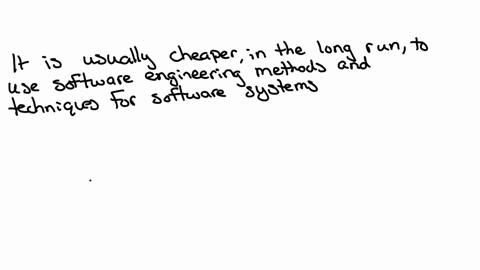 It is usually cheaper, in the long run, to
use software engineering methods and
techniques for software systems